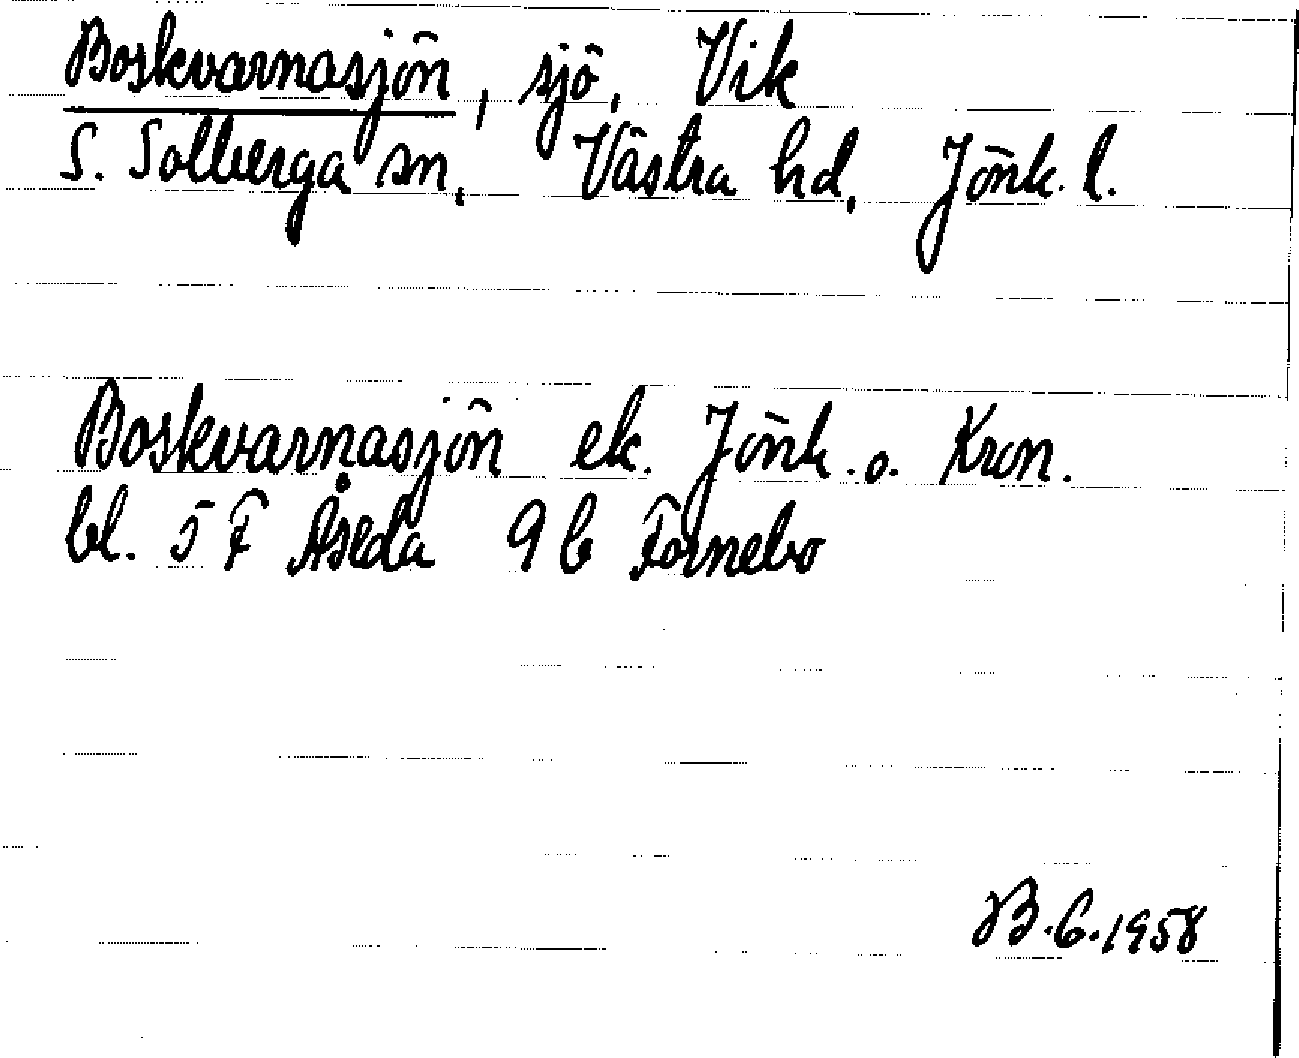 Boskvarnasjön, sjö, Vik
S. Solberga sn, Västra hd, Jönk. l.
Boskvarnasjön ek. Jönk. o. Kron.
bl. 5 F Åseda 9 b Fornebo
B.G. 1958